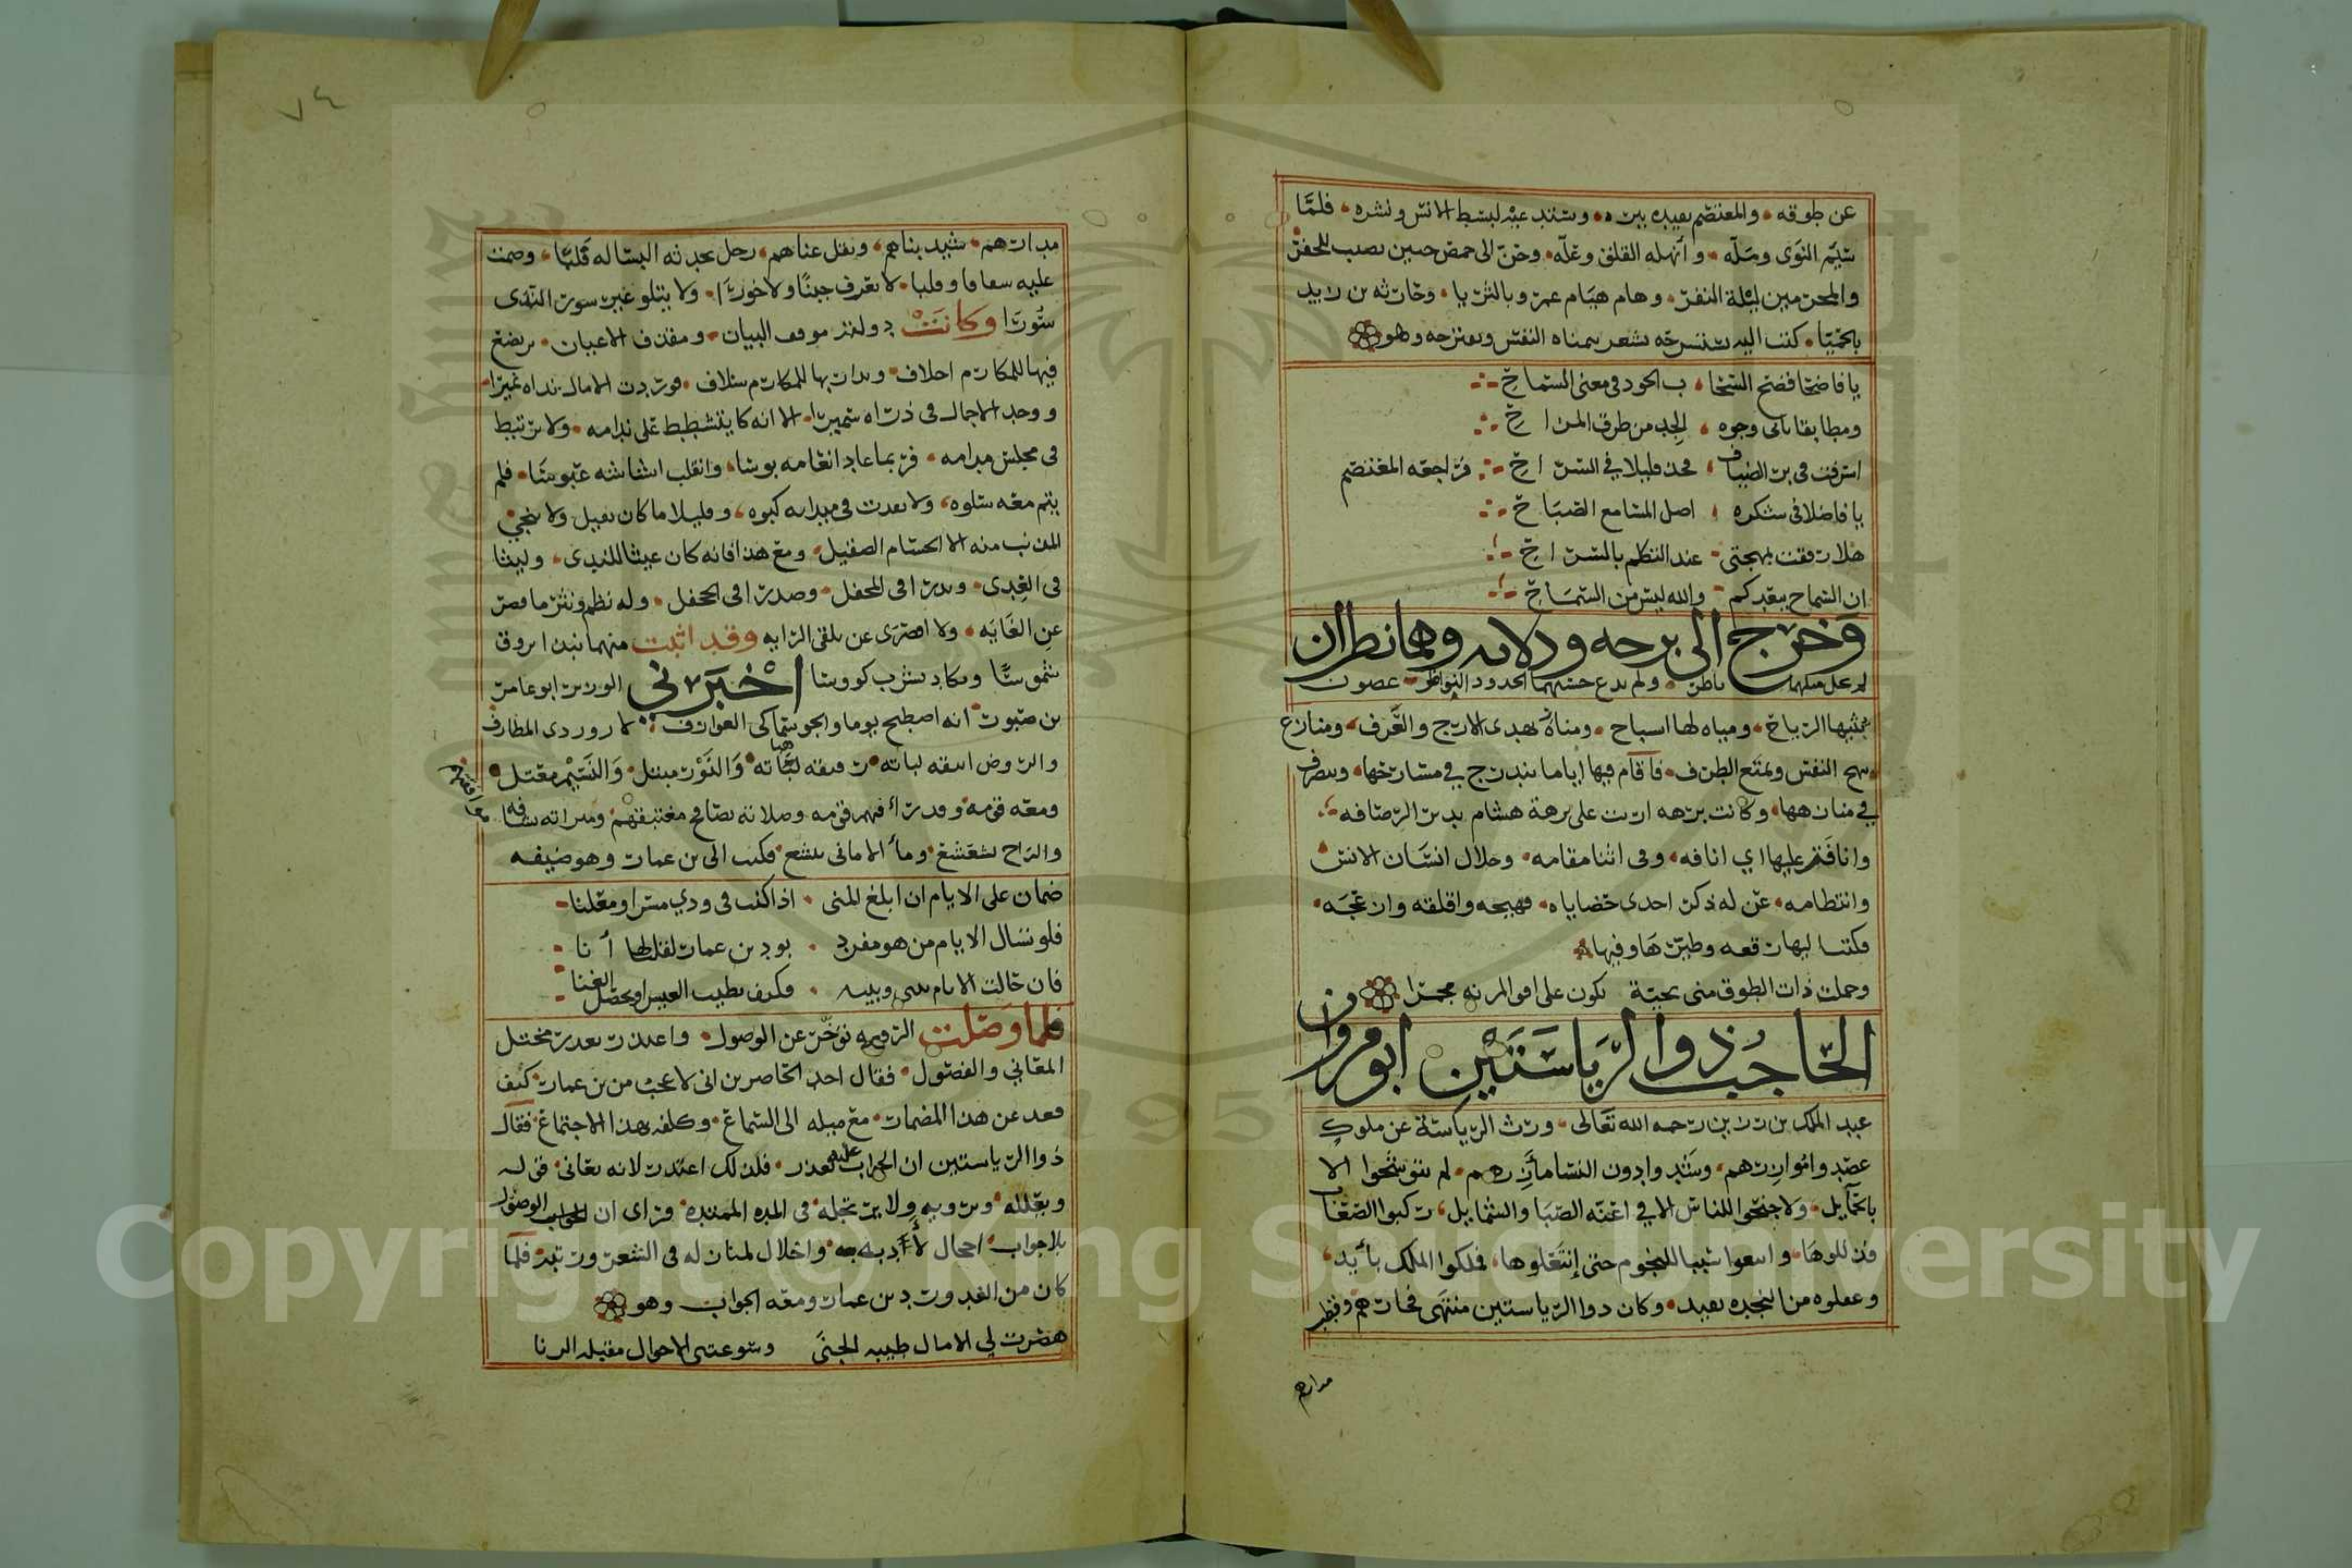 عن طوقه والمعتصم بقيده وستد عيه لبسط الانس ونشره فلما
سئم النوى ومله وانهله القلق وعله وحن الى حمص حنين نصيب للجفر
والمحرمين ليلة النفر وهام هيام عمر وبالثريا وحارثه بن
بالحميا كتب اليه بشعر النفس وهو
يا فاضحا فضح السحا ب الجود في معنى السماح
ومطابقا ياتى وجوه الجد من طرق المزاح
اسرفت فى بر الضياف فجد قليلا في السراح فراجعه المعتصم
يا فاضلا فى شكره اصل المسا مع الصباح
هلا رفقت بمهجتى عند التكلم بالسراح
ان السماح ببعدكم والله ليس من السماح
وخرج الى برجه ودلايه وهما نظران
لم ناظر ولم تدع حسنهما الخدود النواظر غصون
تثنيها الرياح ومياه لها انسياح تهدى الارج والعرف ومنازع
تبهج النفس وتمتع الطرف فاقام فيها اياما يتدرج في مسارحها ويتصرف
في منازهها وكانت نزهه اربت على نزهة هشام بدير الرصافه
وانافت عليها اي انافه وفى اثنا مقامه وخلال اتساق الانس
وانتظامه عن له ذكر احدى حضاياه فهيجه واقلقه وازعجه
فكتب اليها رقعه وطيرها وفيها
وحملت ذات الطوق منى تحية تكون على افق المريه مجمرا
الحاجب ذوا الرياستين ابو مروان
عبد الملك بن رزين رحمه الله تعالى ورث الرياسة عن ملوك
عضدوا موازرهم وشدوا دون النسا مآزرهم لم يتوشحوا الا
بالحمايل ولا جنحوا للناس الا في اعنة الصبا والشمايل ركبوا الصعاب
فذللوها وابتغوا سببا للنجوم حتى انتعلوها فملكوا الملك بايد
وعقلوه من النجده بقيد وكان ذوا الرياستين منتهى فخارهم وقطب
مدارهم
٧٤
مدارهم شيد بناهم ونقل غناهم رجل تحدثه البساله قلبا وضمت
عليه شعافا وقلبا لا تعرف جبنا ولا خورا ولا يتلو غير سور الندى
سورا وكانت دولته موقف البيان ومقذف الاعيان يرتضع
فيها للمكارم اخلاف وتدار بها للمكارم سلاف فوردت الامال نداه نميرا
ووجد الاجمال فى ذراه سميرا الا انه كان يتشطط على ندامه ولا يرتبط
فى مجلس مدامه فربما عاد انعامه بوسا وانقلب ابتسامه عبوسا فلم
يتم معه سلوه ولا تعدت فى ميدانه كبوه وقليلا ما كان يقيل ولا ينجى
المذنب منه الا الحسام الصقيل ومع هذا فانه كان غيثا للندى وليثا
فى العدى وبدرا فى المحفل وصدرا فى الجحفل وله نظم ونثر ما قصر
عن الغايه ولا اقصرى عن تلقى الرايه وقد اثبت منهما نبذا تروق
شموسا وتكاد تشرب كووسا اخبرني الوزير ابو عامر
بن سنون انه اصطبح يوما والجو سماكى العوارف لازوردى المطارف
والروض انيقه لباته رقيقه هباته والنور مبتل والنسيم معتل
ومعه قومه وقد راقهم يومه وصلاته تصافح معتفيهم ومبراته تشافه
والراح تشعشع وماء الامانى ينشع فكتب الى بن عمار وهو ضيفه
ضمان على الايام ان ابلغ المنى اذا كنت فى ودي مسرا ومعلنا
فلو تسال الايام من هو مفرد بود بن عمار لقلت لها أنا
فان حالت الايام بينى وبينه فكيف يطيب العيش او يحصل الغنا
فلما وصلت الرقعه توخر عن الوصول واعتذر بعذر مختل
المعاني والفصول فقال احد الحاضرين انى لاعجب من بن عمار كيف
قعد عن هذا المضمار مع ميله الى السماع وكلفه بهذا الاجتماع فقال
ذوا الرياستين ان الجواب عليه تعذر فلذلك اعتذر لانه يعانى قوله
ويعلله ويرويه ولا يرتجله فى المده الممتده فراى ان الوصول
بلا جواب اخجال لأدبه واخلال لمنازله فى الشعر ورتبه فلما
كان من الغد ورد بن عمار ومعه الجواب وهو
هصرت لي الامال طيبه الجنى وسوغتنى الاحوال مقبله الدنا
Copyright © King Saud University